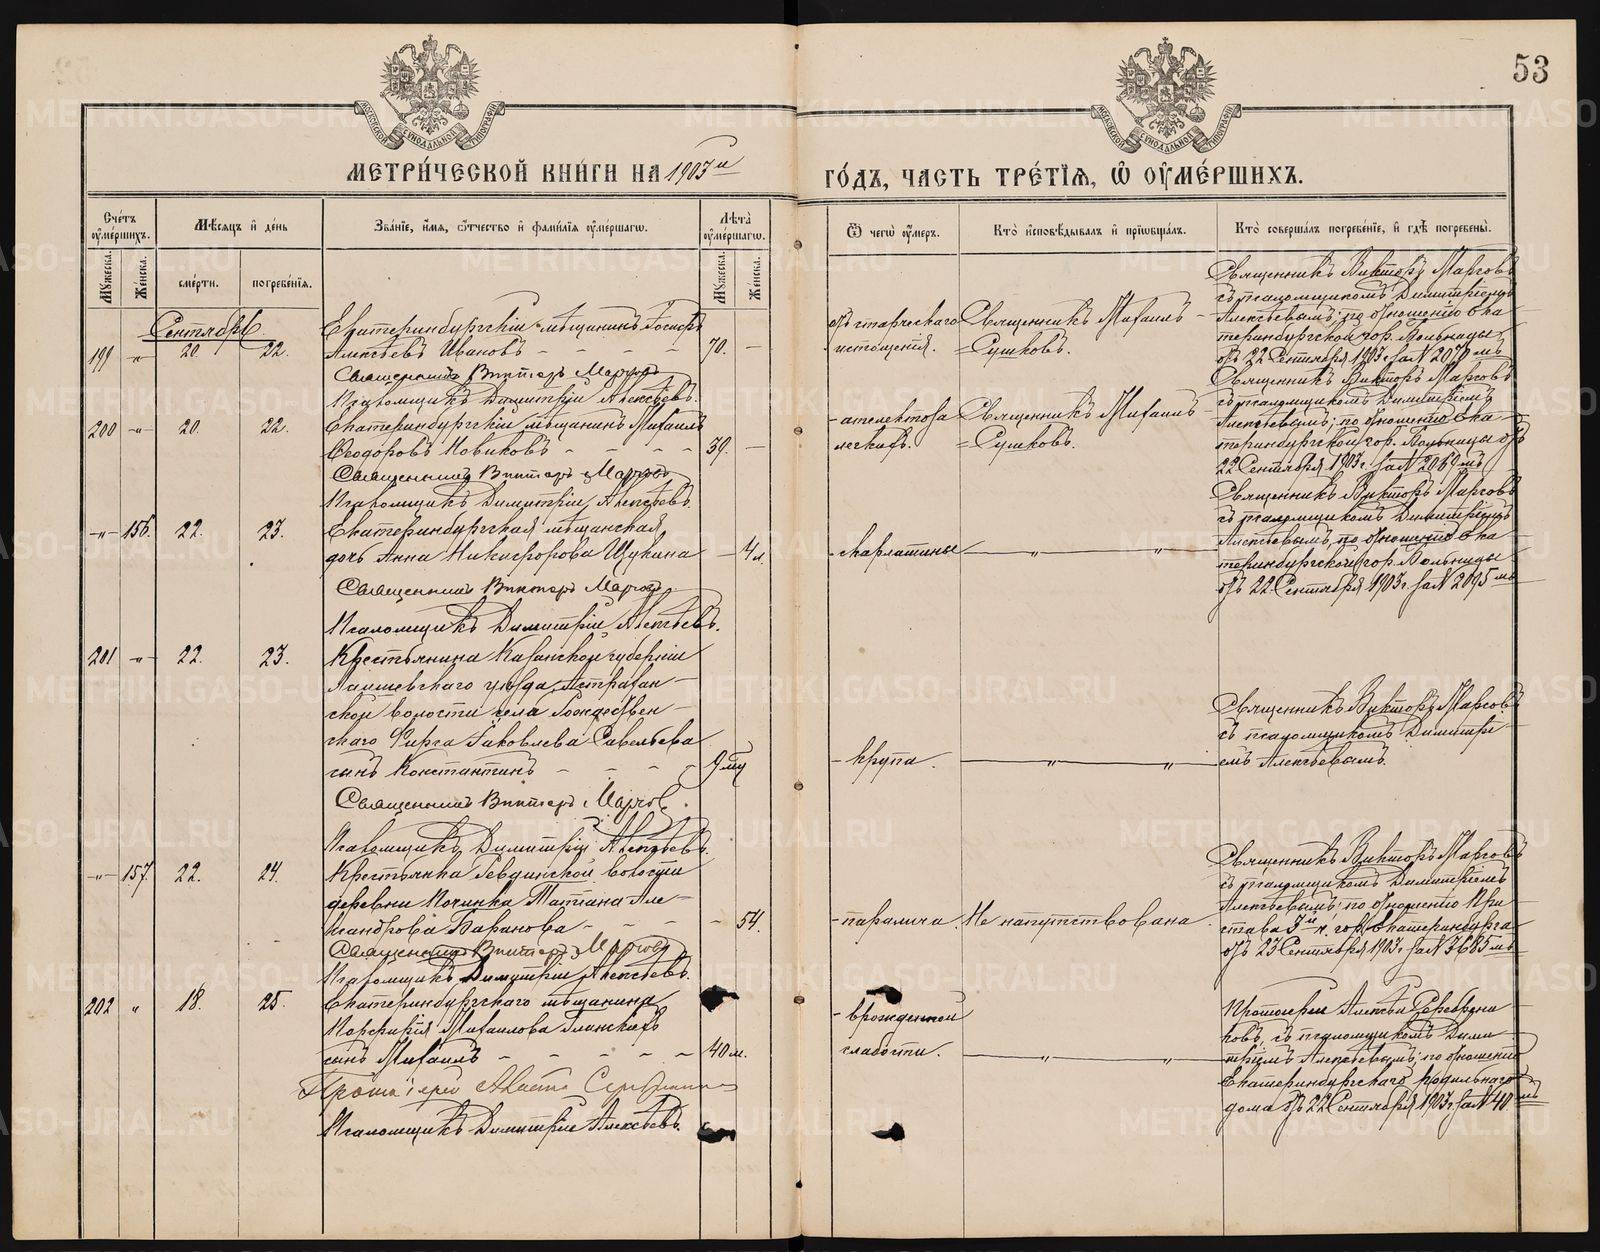 53
МЕТРИ́ЧЕСКОЙ КНИ́ГИ НА 1903й
ГО́ДЪ, ЧАСТЬ ТРЕ́ТІѦ, Ѡ ОУМЕ́РШИХЪ.
Сче́тъ оуме́ршихъ.
Мѣ́сяцъ и де́нь
Зва́ніе, и́мя, ѻ́тчество и фами́лія оуме́ршагѡ.
Лѣта̀ оуме́ршагѡ.
Ѿ чегѡ̀ оу́меръ.
Кто̀ исповѣ́дывалъ и пріѡбща́лъ.
Кто̀ соверша́лъ погребе́ніе, и гдѣ̀ погребены̀.
Мꙋ́жеска.
Же́нска.
сме́рти.
погребе́нія.
Мꙋ́жеска.
Же́нска.
Сентябрь.
199 -"- 20. 22.
Екатеринбургскій мѣщанинъ
Алексѣевъ Ивановъ - - - - 70. -
отъ старческаго
истощенія.
Священникъ Михаилъ
=Сушковъ.
Священникъ Викторъ Марговъ
съ псаломщикомъ Димитріемъ
Алексѣевымъ; по отношенію Ека
теринбургской гор. Больницы
отъ 22 Сентября 1903 г. за № 2070 мъ
Священникъ Викторъ Марговъ
Псаломщикъ Димитрій Алексѣевъ.
200 -"- 20. 22.
Екатеринбургскій мѣщанинъ Михаилъ
Ѳеодоровъ Новиковъ - - - - 39. -
- ателектоза
легкихъ.
Священникъ Михаилъ
=Сушковъ.
Священникъ Викторъ Марговъ
съ псаломщикомъ Димитріемъ
Алексѣевымъ; по отношенію Ека
теринбургской гор. Больницы отъ
22 Сентября 1903 г. за № 2069 мъ
Священникъ Викторъ Марговъ
Псаломщикъ Димитрій Алексѣевъ.
-"- 156. 22. 23.
Екатеринбургская мѣщанская
дочь Анна Никифорова Щукина - 4 л.
- скарлатины - " - "
Священникъ Викторъ Марговъ
съ псаломщикомъ Димитріемъ
Алексѣевымъ, по отношенію Ека
теринбургской гор. Больницы
отъ 22 Сентября 1903 г. за № 2095 мъ
Священникъ Викторъ Марговъ
Псаломщикъ Димитрій Алексѣевъ.
201 -"- 22. 23.
Крестьянина Казанской губерніи
Лаишевскаго уѣзда, Астрахан-
ской волости села Рождествен-
скаго Фирса Іаковлева Савельева
сынъ Константинъ - - - - 9 мц
- крупа. - " - "
Священникъ Викторъ Марговъ
съ псаломщикомъ Димитрі
емъ Алексѣевымъ.
Священникъ Викторъ Марговъ.
Псаломщикъ Димитрій Алексѣевъ.
-"- 157. 22. 24.
Крестьянка Ревдинской волости
деревни Починка Татіана Але-
ксандрова Баранова - - - 54.
- паралича. Не напутствована
Священникъ Викторъ Марговъ
съ псаломщикомъ Димитріемъ
Алексѣевымъ; по отношенію При
става 3й ч. гор. Екатеринбурга
отъ 23 Сентября 1903 г. за № 3685 мъ
Священникъ Викторъ Марговъ
Псаломщикъ Димитрій Алексѣевъ.
202 " 18. 25.
Екатеринбургскаго мѣщанина
Порфирія Михаилова
сынъ Михаилъ - - - - - 40 м.
- врожденной
слабости. - " - "
Протоіерей Алексѣй Серебрени
ковъ, съ псаломщикомъ Дими
тріемъ Алексѣевымъ; по отношенію
Екатеринбургскаго родильнаго
дома отъ 22 Сентября 1903 г. за № 40 мъ
Протоіерей
Псаломщикъ Димитрій Алексѣевъ.
METRIKI.GASO-URAL.RU